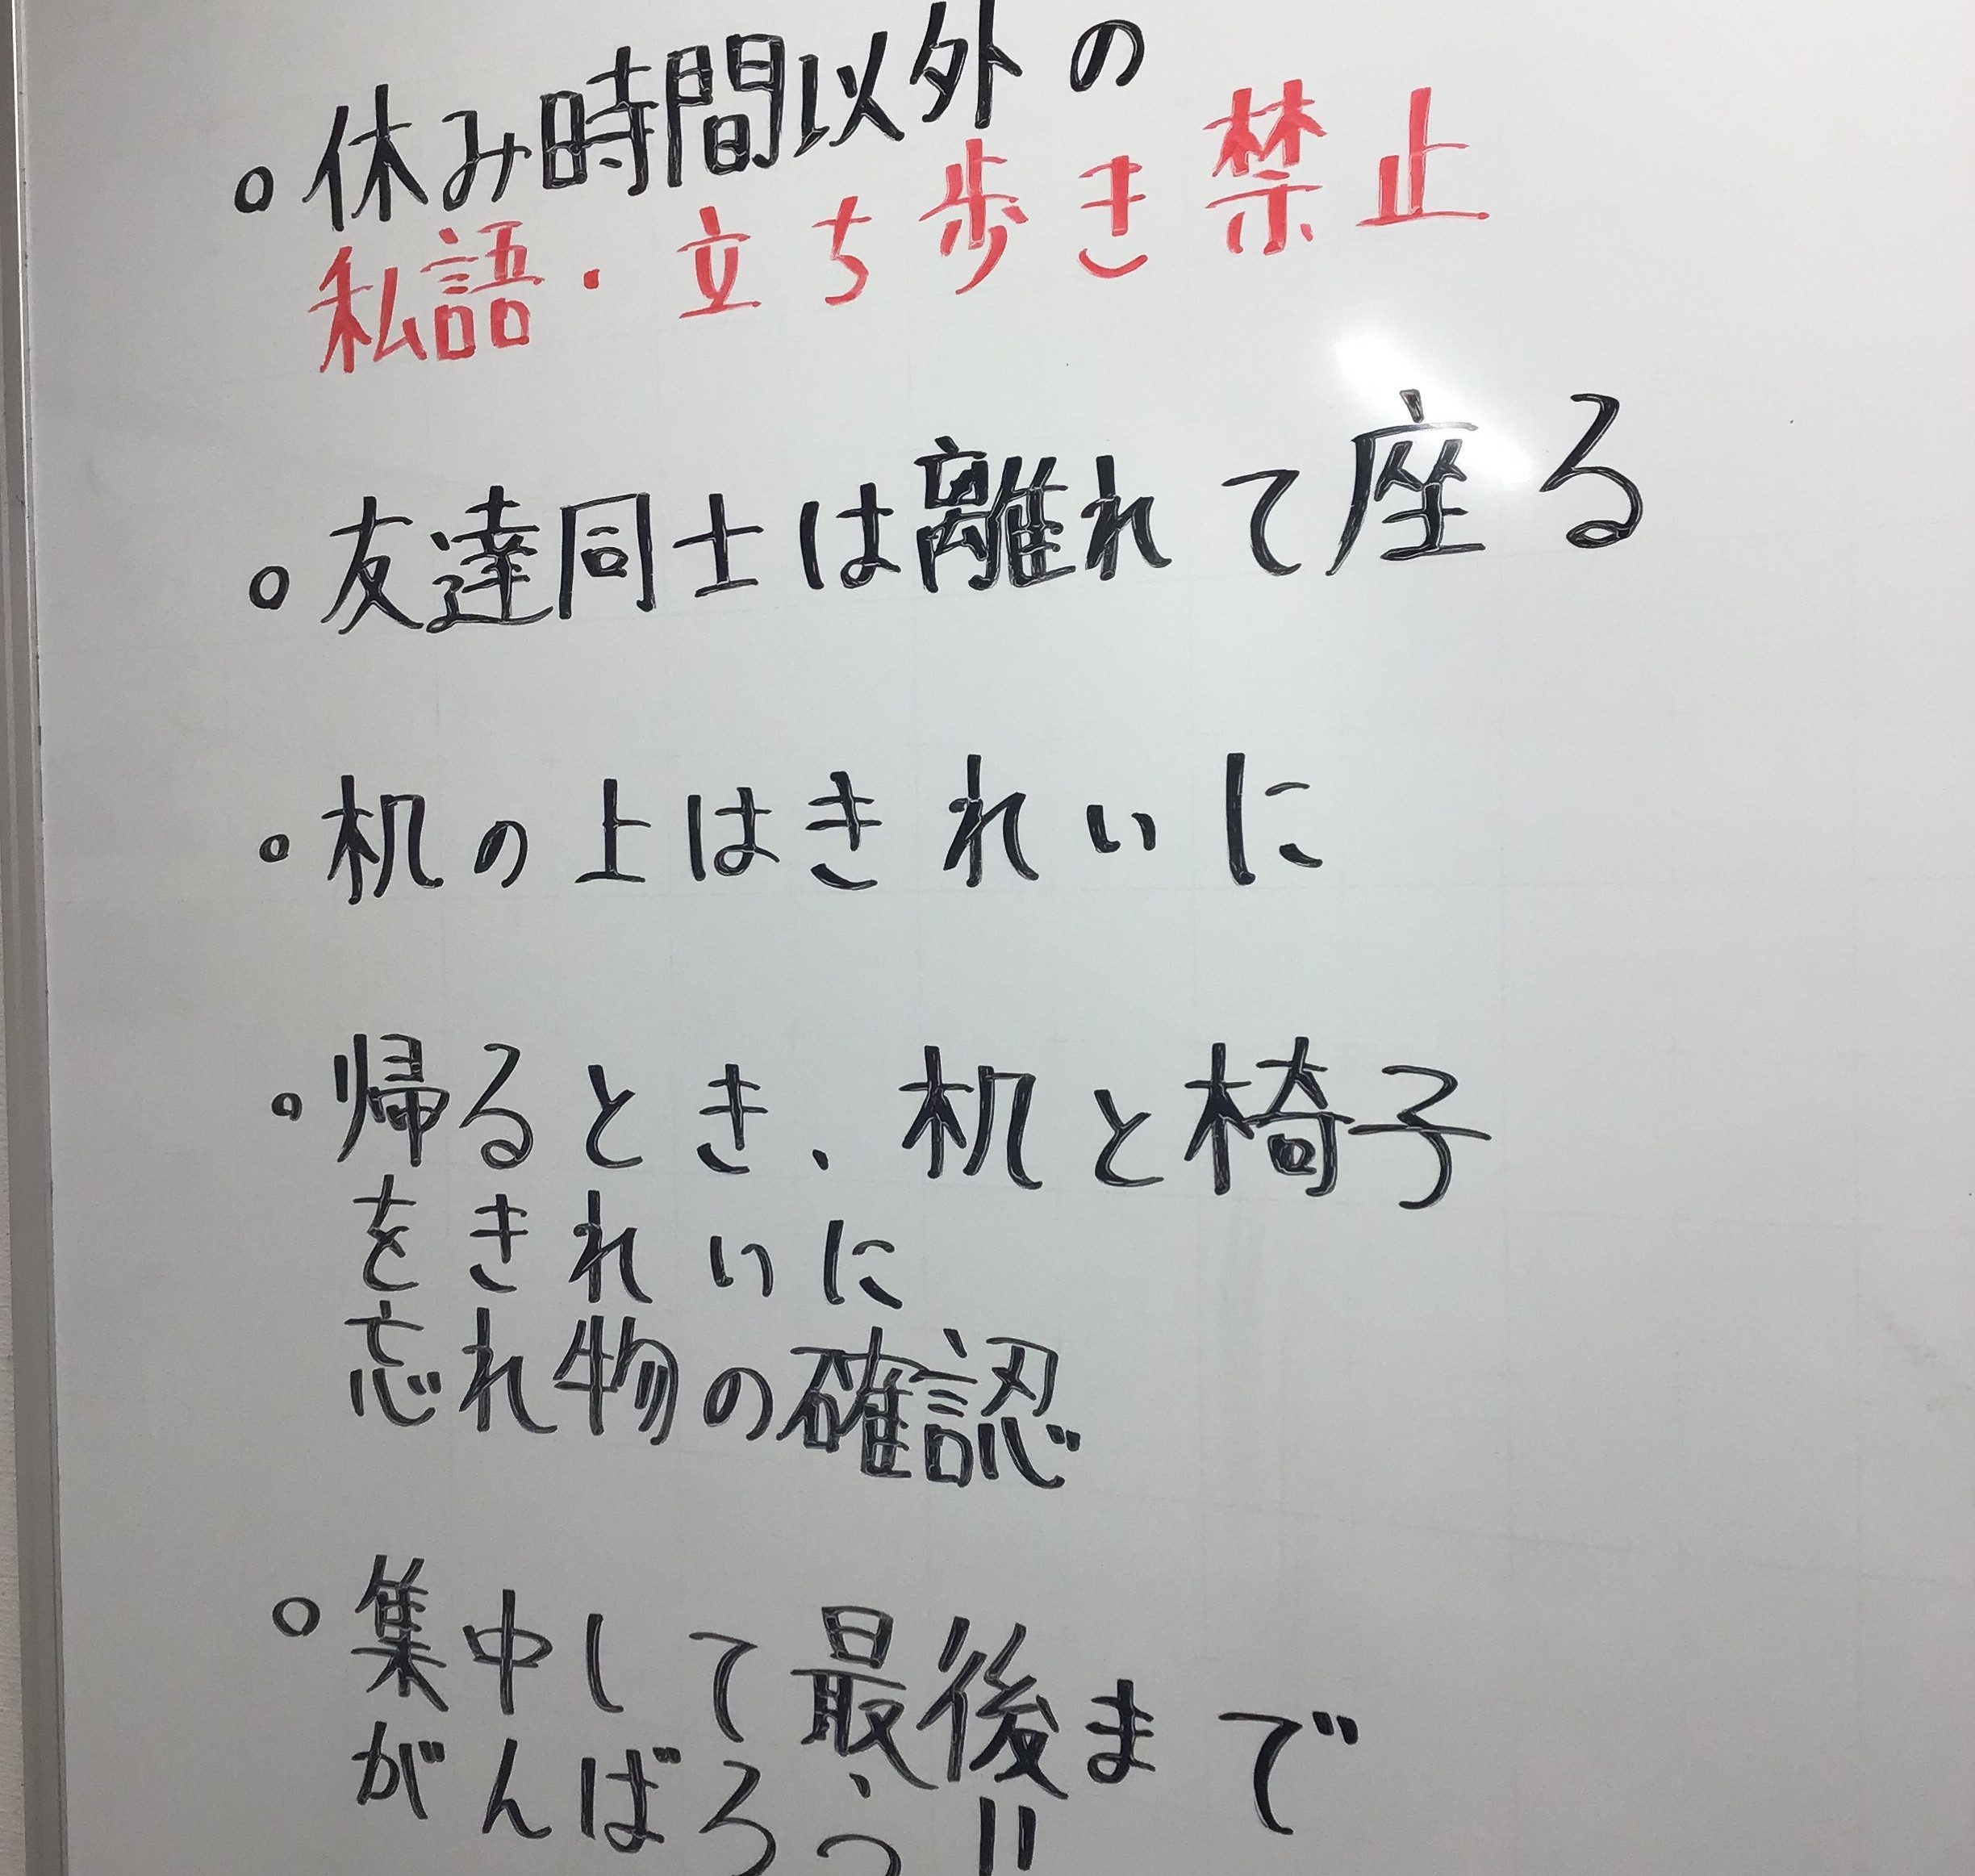 ○休み時間以外の
私語・立ち歩き禁止
○友達同士は離れて座る
○机の上はきれいに
○帰るとき、机と椅子
をきれいに
忘れ物の確認
○集中して最後まで
がんばろう!!